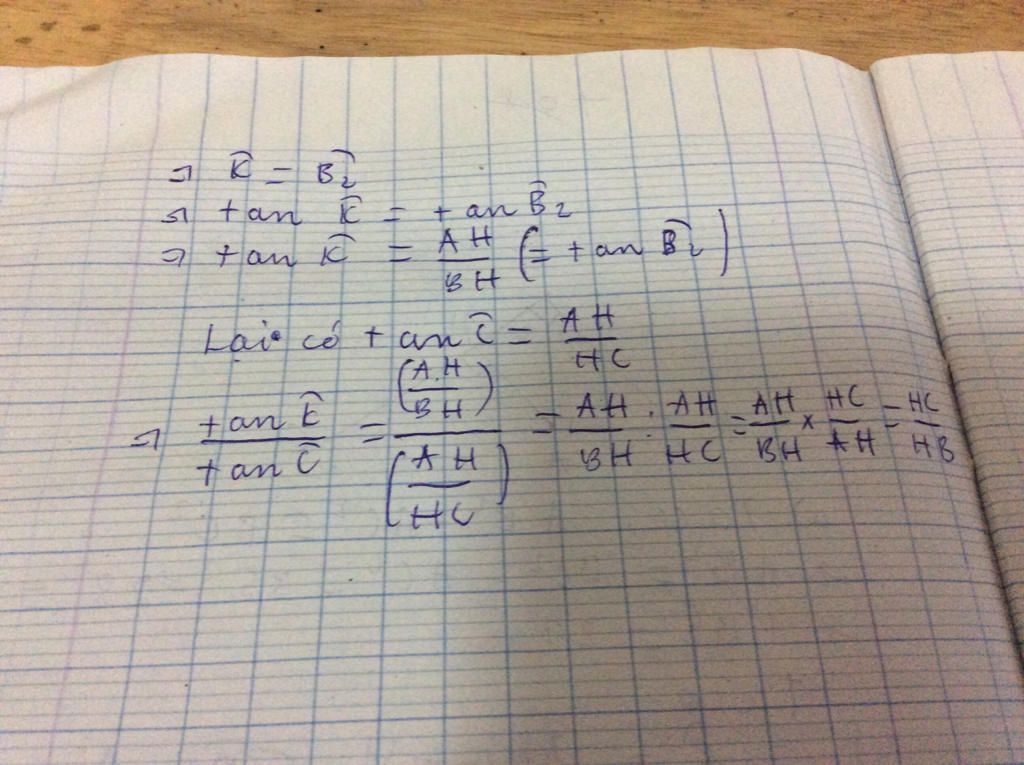 ⇒ K̂ = B̂₂
⇒ tan K̂ = tan B̂₂
⇒ tan K̂ = AH/BH (= tan B̂₂)
Lại có tan Ĉ = AH/HC
⇒ tan K̂/tan Ĉ = (AH/BH)/(AH/HC) = AH/BH : AH/HC = AH/BH × HC/AH = HC/HB